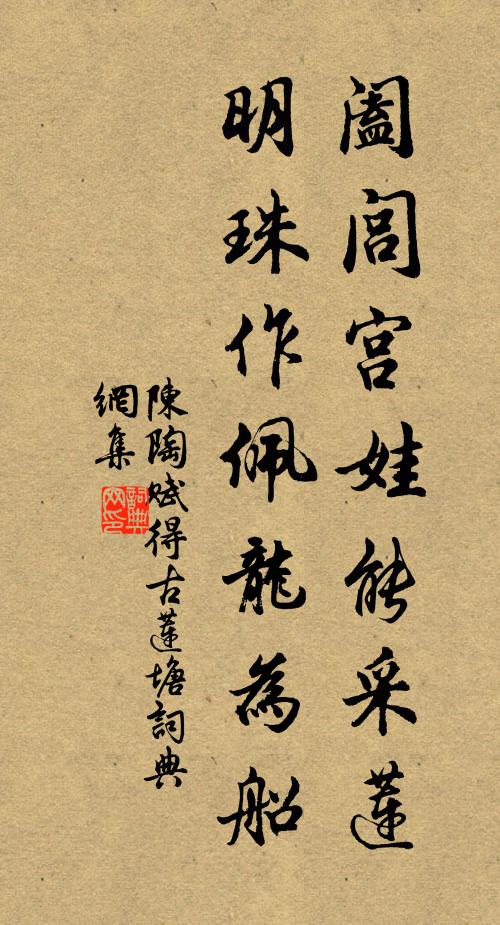 闔閭宮娃能采蓮
明珠作佩龍為船
陳陶賦得古蓮塘詞典
網集
詞典
网印